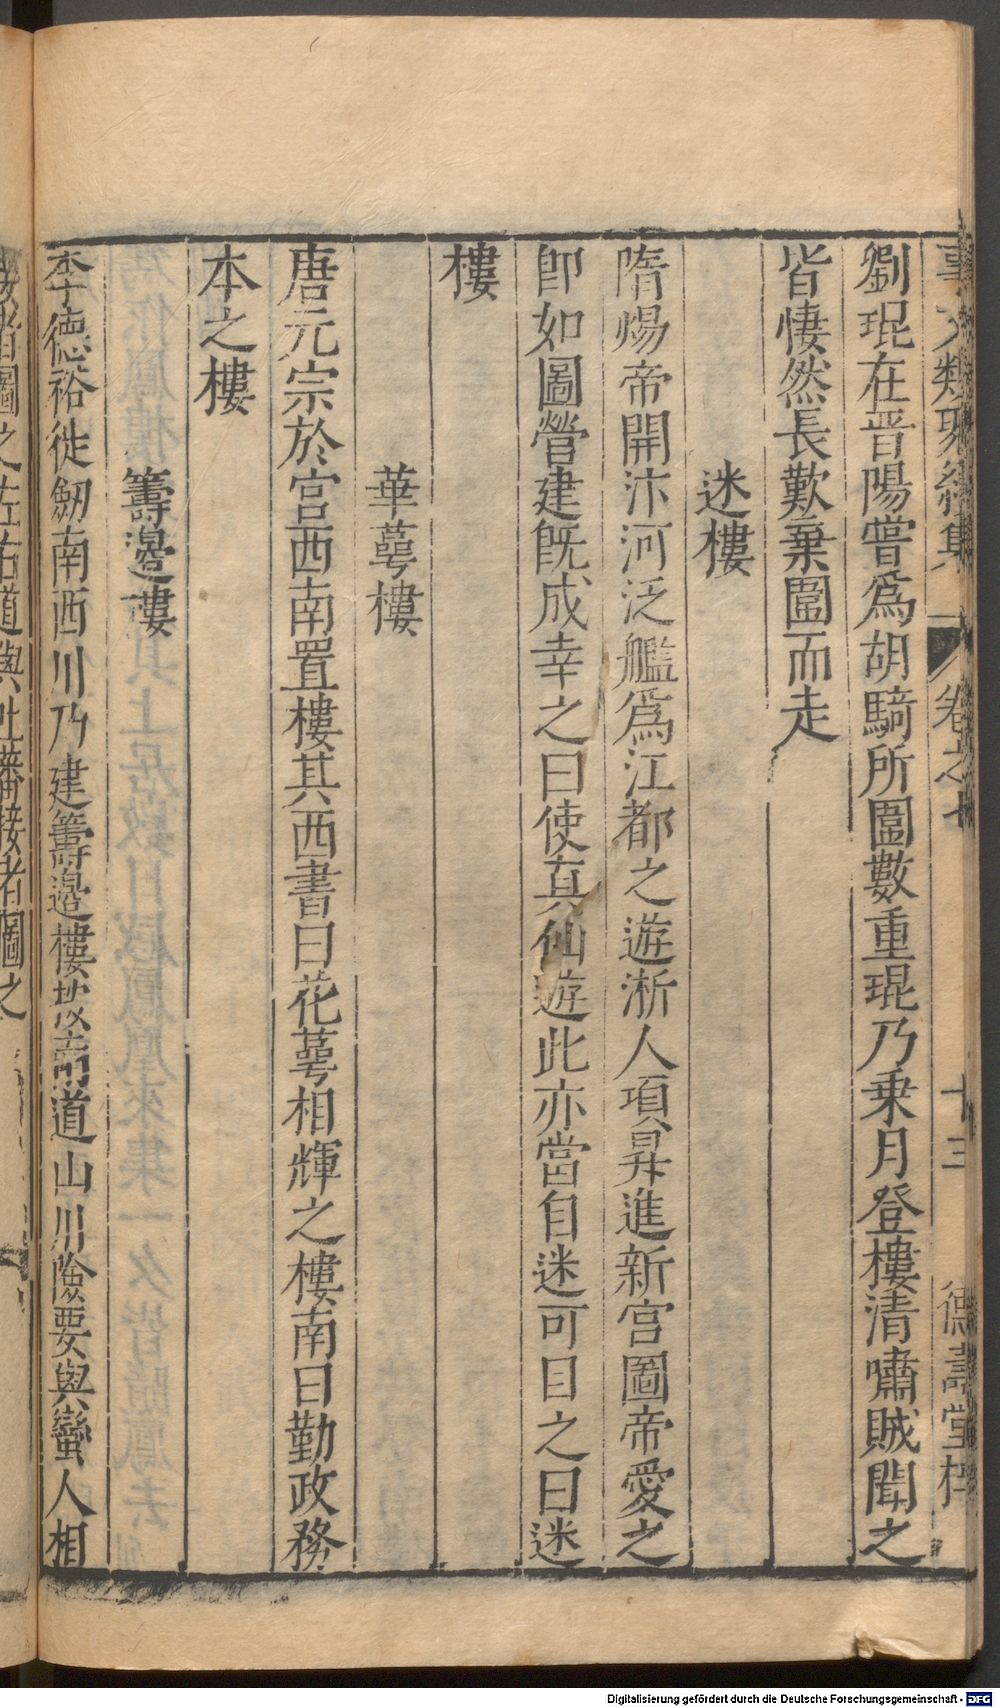 事文類聚續集 卷之七 十三 德壽堂梓
劉琨在晋陽嘗爲胡騎所圍數重琨乃乗月登樓清嘯賊聞之
皆悽然長歎棄圍而走
迷樓
隋煬帝開汴河泛艦爲江都之遊浙人項昇進新宫圖帝愛之
卽如圖營建旣成幸之曰使真仙遊此亦當自迷可目之曰迷
樓
華萼樓
唐元宗於宫西南置樓其西書曰花萼相輝之樓南曰勤政務
本之樓
籌邊樓
李德裕徙劒南西川乃建籌邊樓按南道山川險要與蠻人相
者圖之左右道與吐蕃接者圖之
Digitalisierung gefördert durch die Deutsche Forschungsgemeinschaft - DFG